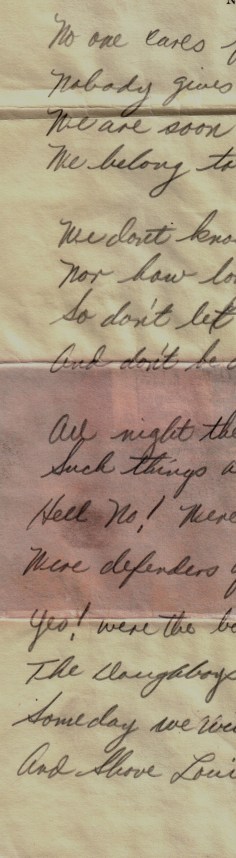 No one cares
Nobody gives
We are soon
We belong to
We don't kno
Nor how lo
So don't let
And don't be
All night the
Such things a
Hell No! Were
Were defenders
Yes! were the b
The Doughboys
Someday we
And Shove Loui